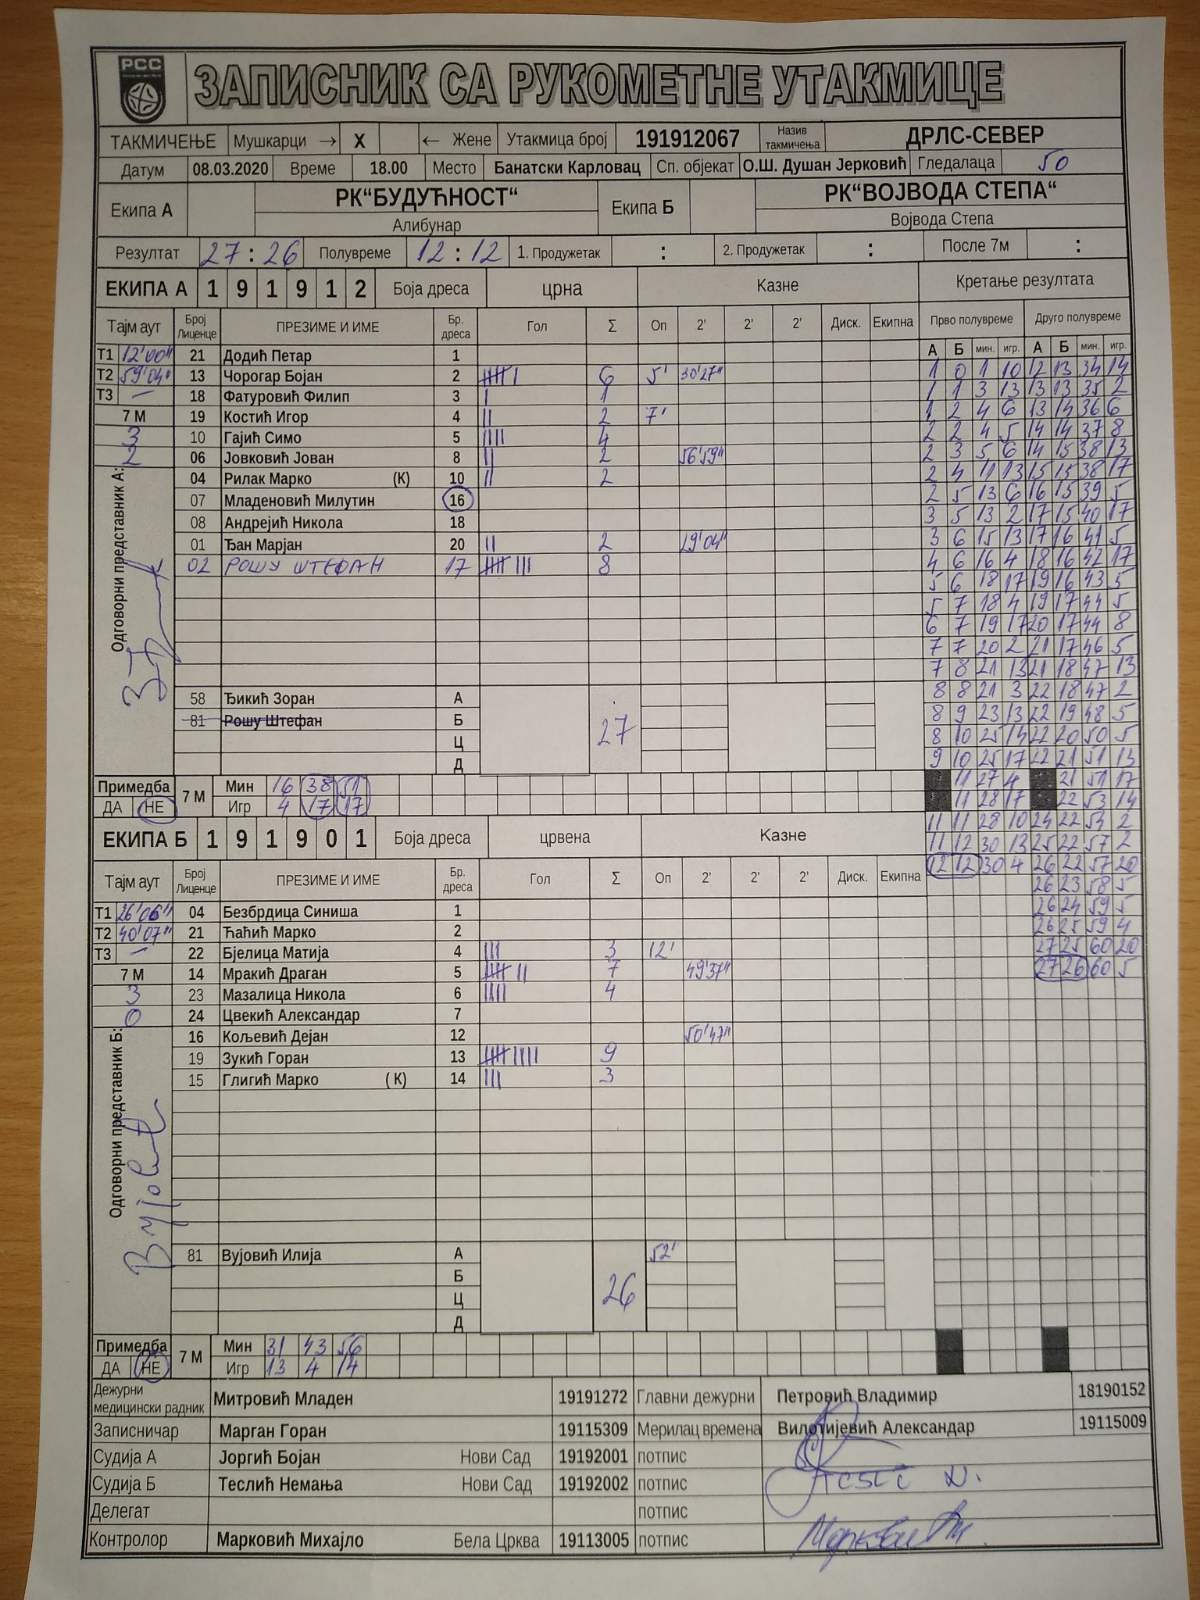 РСС
ЗАПИСНИК СА РУКОМЕТНЕ УТАКМИЦЕ
ТАКМИЧЕЊЕ Мушкарци → X ← Жене Утакмица број 191912067 Назив такмичења ДРЛС-СЕВЕР
Датум 08.03.2020 Време 18.00 Место Банатски Карловац Сп. објекат О.Ш. Душан Јерковић Гледалаца 50
Екипа А РК“БУДУЋНОСТ“ Екипа Б РК“ВОЈВОДА СТЕПА“
Алибунар Војвода Степа
Резултат 27 : 26 Полувреме 12 : 12 1. Продужетак : 2. Продужетак : После 7м :
ЕКИПА А 1 9 1 9 1 2 Боја дреса црна Казне Кретање резултата
Тајм аут Број Лиценце ПРЕЗИМЕ И ИМЕ Бр. дреса Гол Σ Оп 2' 2' 2' Диск. Екипна Прво полувреме Друго полувреме
А Б мин. игр. А Б мин. игр.
Т1 12'00" 21 Додић Петар 1
Т2 59'04" 13 Чорогар Бојан 2 6 5' 30'27" 1 0 1 10 12 13 34 14
Т3 — 18 Фатуровић Филип 3 1 1 1 3 13 13 13 35 2
7 М 19 Костић Игор 4 2 7' 1 2 4 6 13 14 36 6
3 10 Гајић Симо 5 4 2 2 4 5 14 14 37 8
2 06 Јовковић Јован 8 2 56'59" 2 3 5 6 14 15 38 13
04 Рилак Марко (К) 10 2 2 4 11 13 15 15 38 17
07 Младеновић Милутин 16 2 5 13 6 16 15 39 5
08 Андрејић Никола 18 3 5 13 2 17 15 40 17
01 Ђан Марјан 20 2 19'04" 3 6 15 13 17 16 41 5
02 РОШУ ШТЕФАН 17 8 4 6 16 4 18 16 42 17
5 6 18 17 19 16 43 5
5 7 18 4 19 17 44 5
6 7 19 17 20 17 44 8
7 7 20 2 21 17 46 5
7 8 21 13 21 18 47 13
Одговорни представник А:
58 Ђикић Зоран А 8 8 21 3 22 18 47 2
81 Рошу Штефан Б 27 8 9 23 13 22 19 48 5
Ц 8 10 25 14 22 20 50 5
Д 9 10 25 17 22 21 51 13
Примедба 7 М Мин 16 38 51 11 27 4 21 51 17
ДА НЕ Игр 4 17 17 11 28 17 22 53 14
ЕКИПА Б 1 9 1 9 0 1 Боја дреса црвена Казне 11 11 28 10 24 22 54 2
11 12 30 13 25 22 57 2
Тајм аут Број Лиценце ПРЕЗИМЕ И ИМЕ Бр. дреса Гол Σ Оп 2' 2' 2' Диск. Екипна 12 12 30 4 26 22 57 20
26 23 58 5
Т1 26'06" 04 Безбрдица Синиша 1 26 24 59 5
Т2 40'07" 21 Ћаћић Марко 2 26 25 59 4
Т3 — 22 Бјелица Матија 4 3 12' 27 25 60 20
7 М 14 Мракић Драган 5 7 49'37" 27 26 60 5
3 23 Мазалица Никола 6 4
0 24 Цвекић Александар 7
16 Кољевић Дејан 12 50'47"
19 Зукић Горан 13 9
15 Глигић Марко ( К) 14 3
Одговорни представник Б:
81 Вујовић Илија А 52'
Б 26
Ц
Д
Примедба 7 М Мин 31 43 56
ДА НЕ Игр 13 4 14
Дежурни медицински радник Митровић Младен 19191272 Главни дежурни Петровић Владимир 18190152
Записничар Марган Горан 19115309 Мерилац времена Вилотијевић Александар 19115009
Судија А Јоргић Бојан Нови Сад 19192001 потпис
Судија Б Теслић Немања Нови Сад 19192002 потпис
Делегат потпис
Контролор Марковић Михајло Бела Црква 19113005 потпис